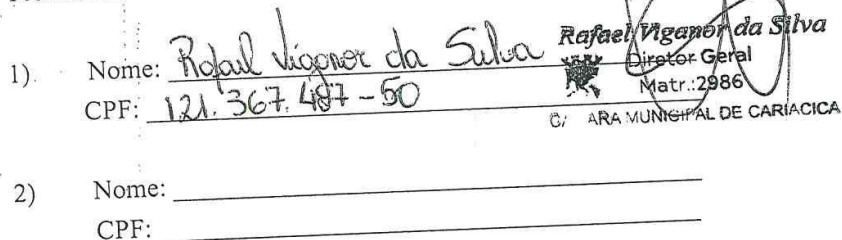 1). Nome: Rafael Viganor da Silva
CPF: 121.367.487-50
Rafael Viganor da Silva
Diretor Geral
Matr.:2986
ARA MUNICIPAL DE CARIACICA
2) Nome:
CPF: